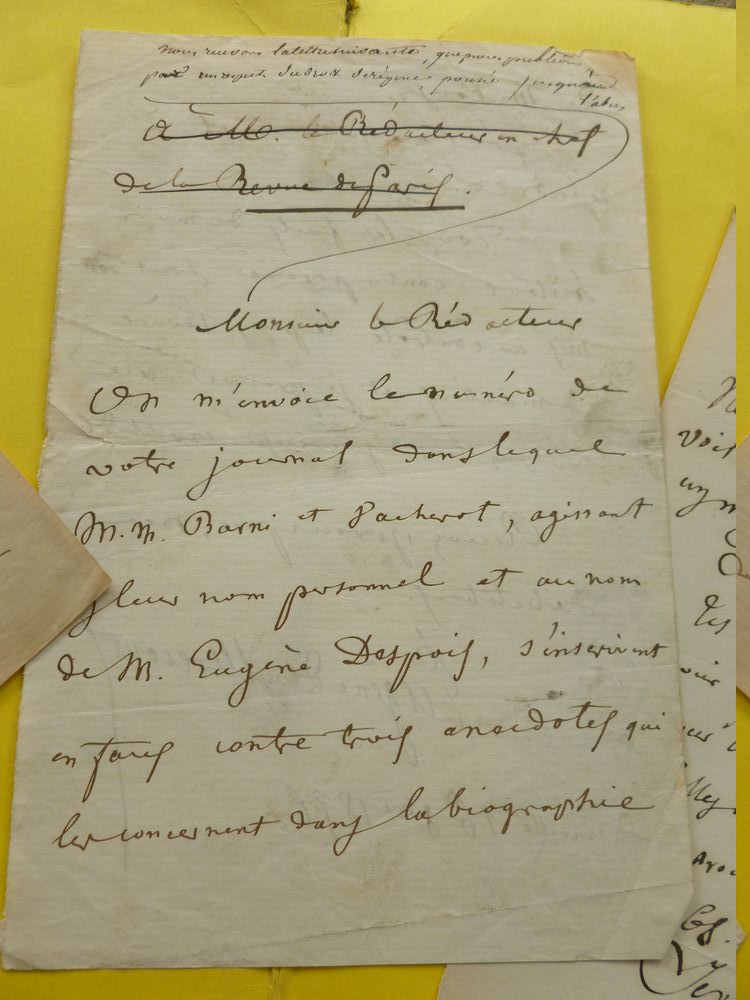 nous recevons la lettre suivante, que nous publions
par un respect du droit de réponse poussé jusqu'à
l'abus
A M. le Rédacteur en chef
de la Revue de Paris.
Monsieur le Rédacteur
On m'envoie le numéro de
votre journal dans lequel
M.M. Barni et Vacherot, agissant
leur nom personnel et au nom
de M. Eugène Despois, s'inscrivent
en faux contre trois anecdotes qui
les concernent dans la biographie